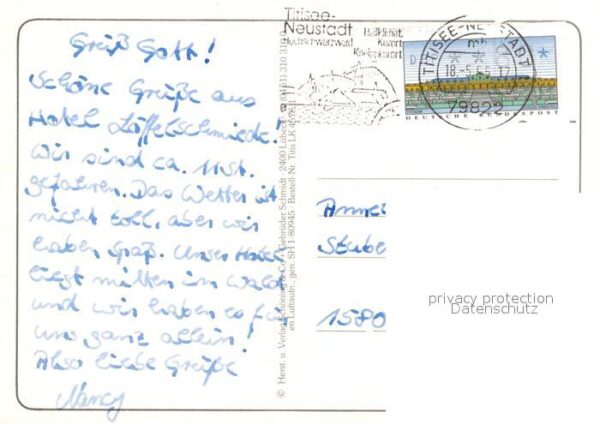 Grüß Gott!
Schöne Grüße aus
Hotel Löffelschmiede!
Wir sind ca. 11 St.
gefahren. Das Wetter ist
nicht toll, aber wir
haben Spaß. Unser Hotel
liegt mitten im Wald
und wir haben es für
uns ganz allein!
Also liebe Grüße
Nancy
© Herst. u. Verlag Schöning & Co + Gebrüder Schmidt · 2400 Lübeck
en Luftaufn. gen. SH 1-80945 Bestell-Nr. Titis LK
Titisee-
Neustadt
Hochschwarzwald
Heilklimat.
Kurort
Kneippkurort
TITISEE-NEUSTADT
79822
DEUTSCHE BUNDESPOST
Stube
1580
privacy protection
Datenschutz